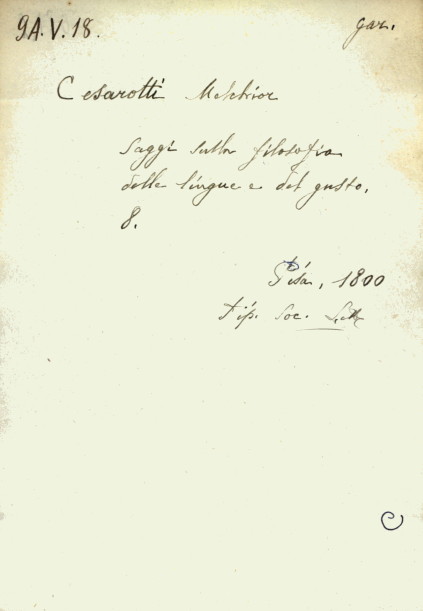 9A.V.18.
gar.
Cesarotti Melchior
Saggi sulla filosofia
delle lingue e del gusto.
8.
Pisa, 1800
tip. Soc. Lett
C